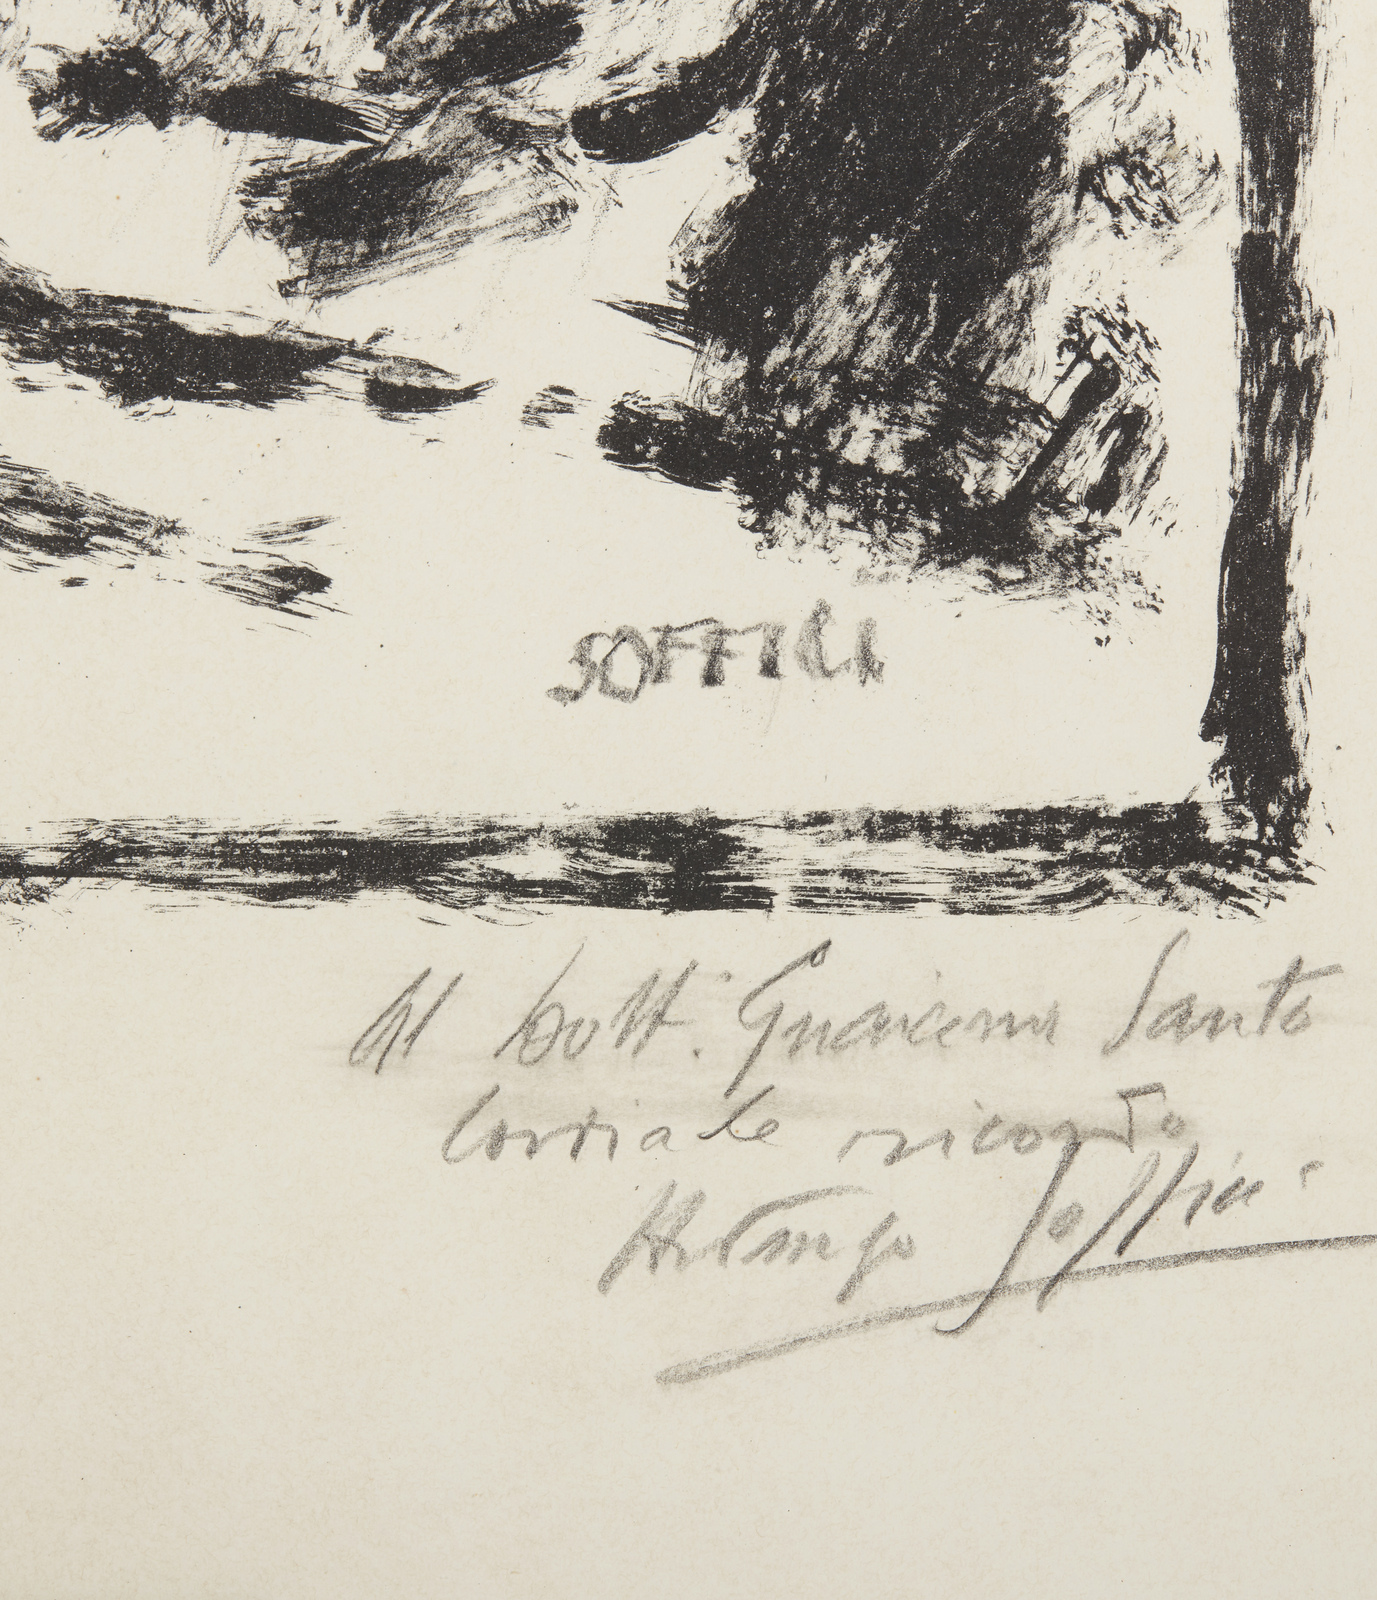 SOFFICI
Al Dott. Guaicena Santo
Cordiale ricordo
Ardengo Soffici